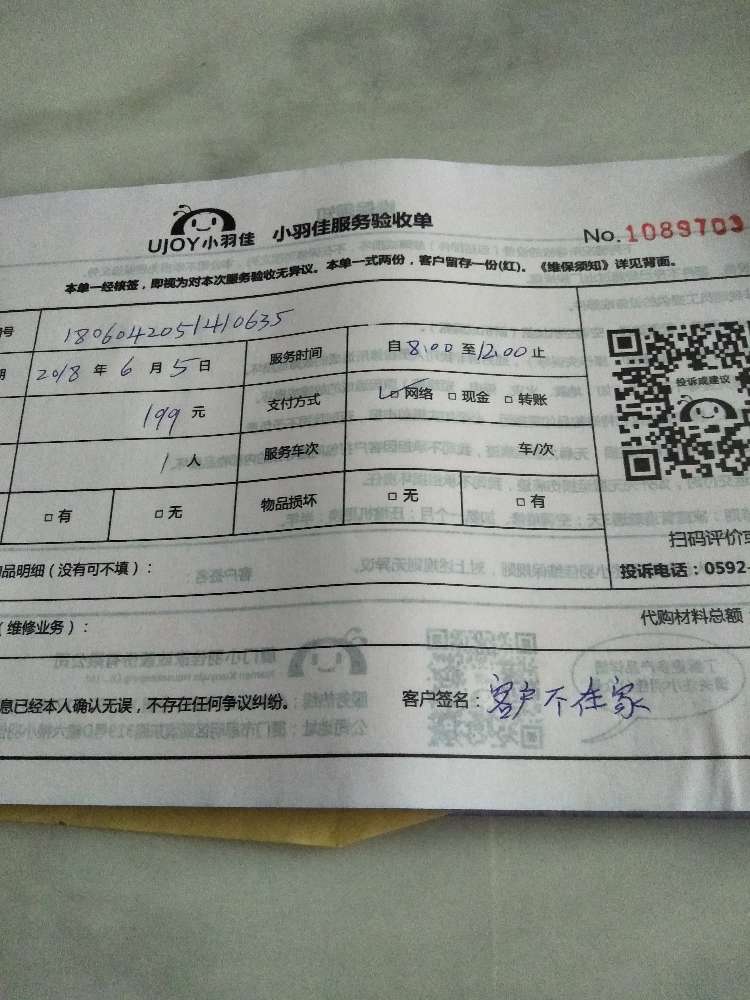 UJOY小羽佳 小羽佳服务验收单 No.1089703
本单一经核签，即视为对本次服务验收无异议。本单一式两份，客户留存一份(红)。《维保须知》详见背面。
号 1806042051410635
期 2018 年 6 月 5 日 服务时间 自 8:00 至 12:00 止
199 元 支付方式 网络 现金 转账
1 人 服务车次 车/次
有 无 物品损坏 无 有
投诉或建议
扫码评价或
品明细（没有可不填）： 投诉电话：0592-
（维修业务）： 代购材料总额
息已经本人确认无误，不存在任何争议纠纷。 客户签名：客户不在家